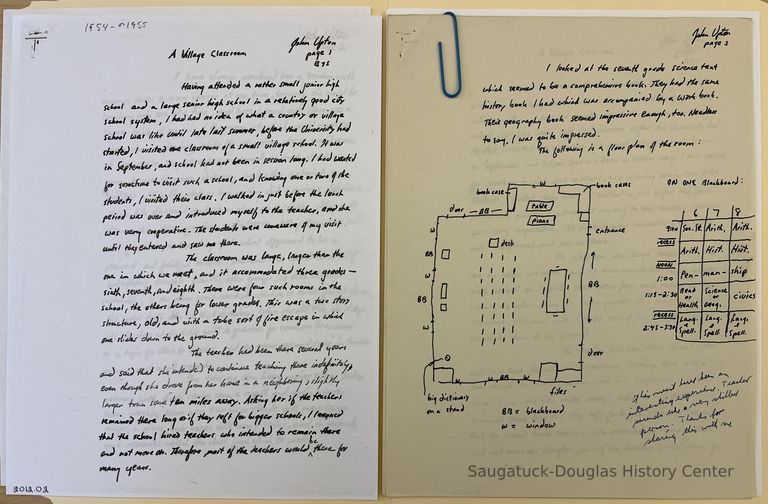 1954-1955
A Village Classroom
John Upton
page 1
Having attended a rather small junior high
school and a large senior high school in a relatively good city
school system, I had had no idea of what a country or village
school was like until late last summer, before the University had
started, I visited one classroom of a small village school. It was
in September, and school had not been in session long. I had wanted
for sometime to visit such a school, and knowing one or two of the
students, I visited their class. I walked in just before the lunch
period was over and introduced myself to the teacher, and she
was very cooperative. The students were unaware of my visit
until they entered and saw me there.
The classroom was large, larger than the
one in which we meet, and it accommodated three grades—
sixth, seventh, and eighth. There were four such rooms in the
school, the others being for lower grades. This was a two story
structure, old, and with a tube sort of fire escape in which
one slides down to the ground.
The teacher had been there several years
and said that she intended to continue teaching there indefinitely,
even though she drove from her home in a neighboring, slightly
larger town some ten miles away. Asking her if the teachers
remained there long or if they left for bigger schools, I learned
that the school hired teachers who intended to remain there
and not move on. Therefore most of the teachers would be there for
many years.
2012.02
John Upton
page 3
I looked at the seventh grade science text
which seemed to be a comprehensive book. They had the same
history book I had which was accompanied by a work book.
Their geography book seemed impressive enough, too. Needless
to say, I was quite impressed.
The following is a floor plan of the room:
bookcase
W
book cases
door
BB
table
piano
entrance
desk
W
BB
W
BB
W
BB
door
W
BB
W
files
big dictionary
on a stand
BB = blackboard
W = window
ON ONE Blackboard:
6 7 8
9:00 Soc. St. Arith. Arith.
recess
Arith. Hist. Hist.
NOON
1:00 Pen-man-ship
1:15-2:30 Read or Health Science or Geog. civics
recess
2:45-3:30 Lang. & Spell. Lang. & Spell. Lang. & Spell.
This must have been an
interesting experience. Teacher
sounds like a very skilled
person. Thanks for
sharing this with me.
Saugatuck-Douglas History Center